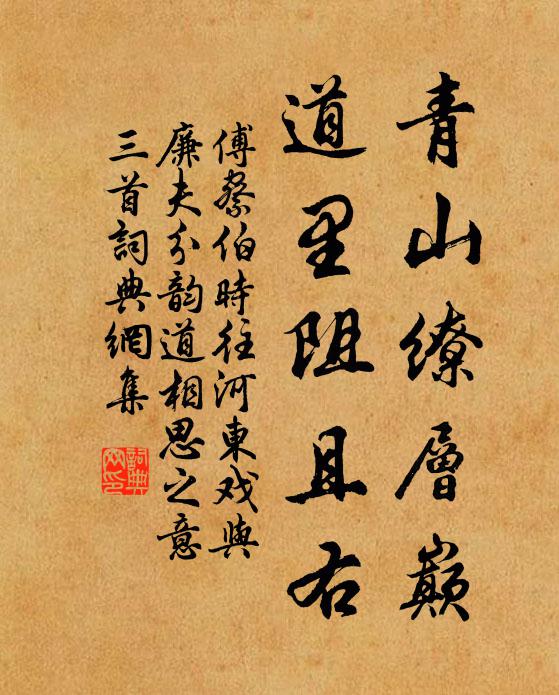 青山繚層巔
道里阻且右
傅察伯時往河東戏與
廉夫分韵道相思之意
三首詞典網集
詞典
网印